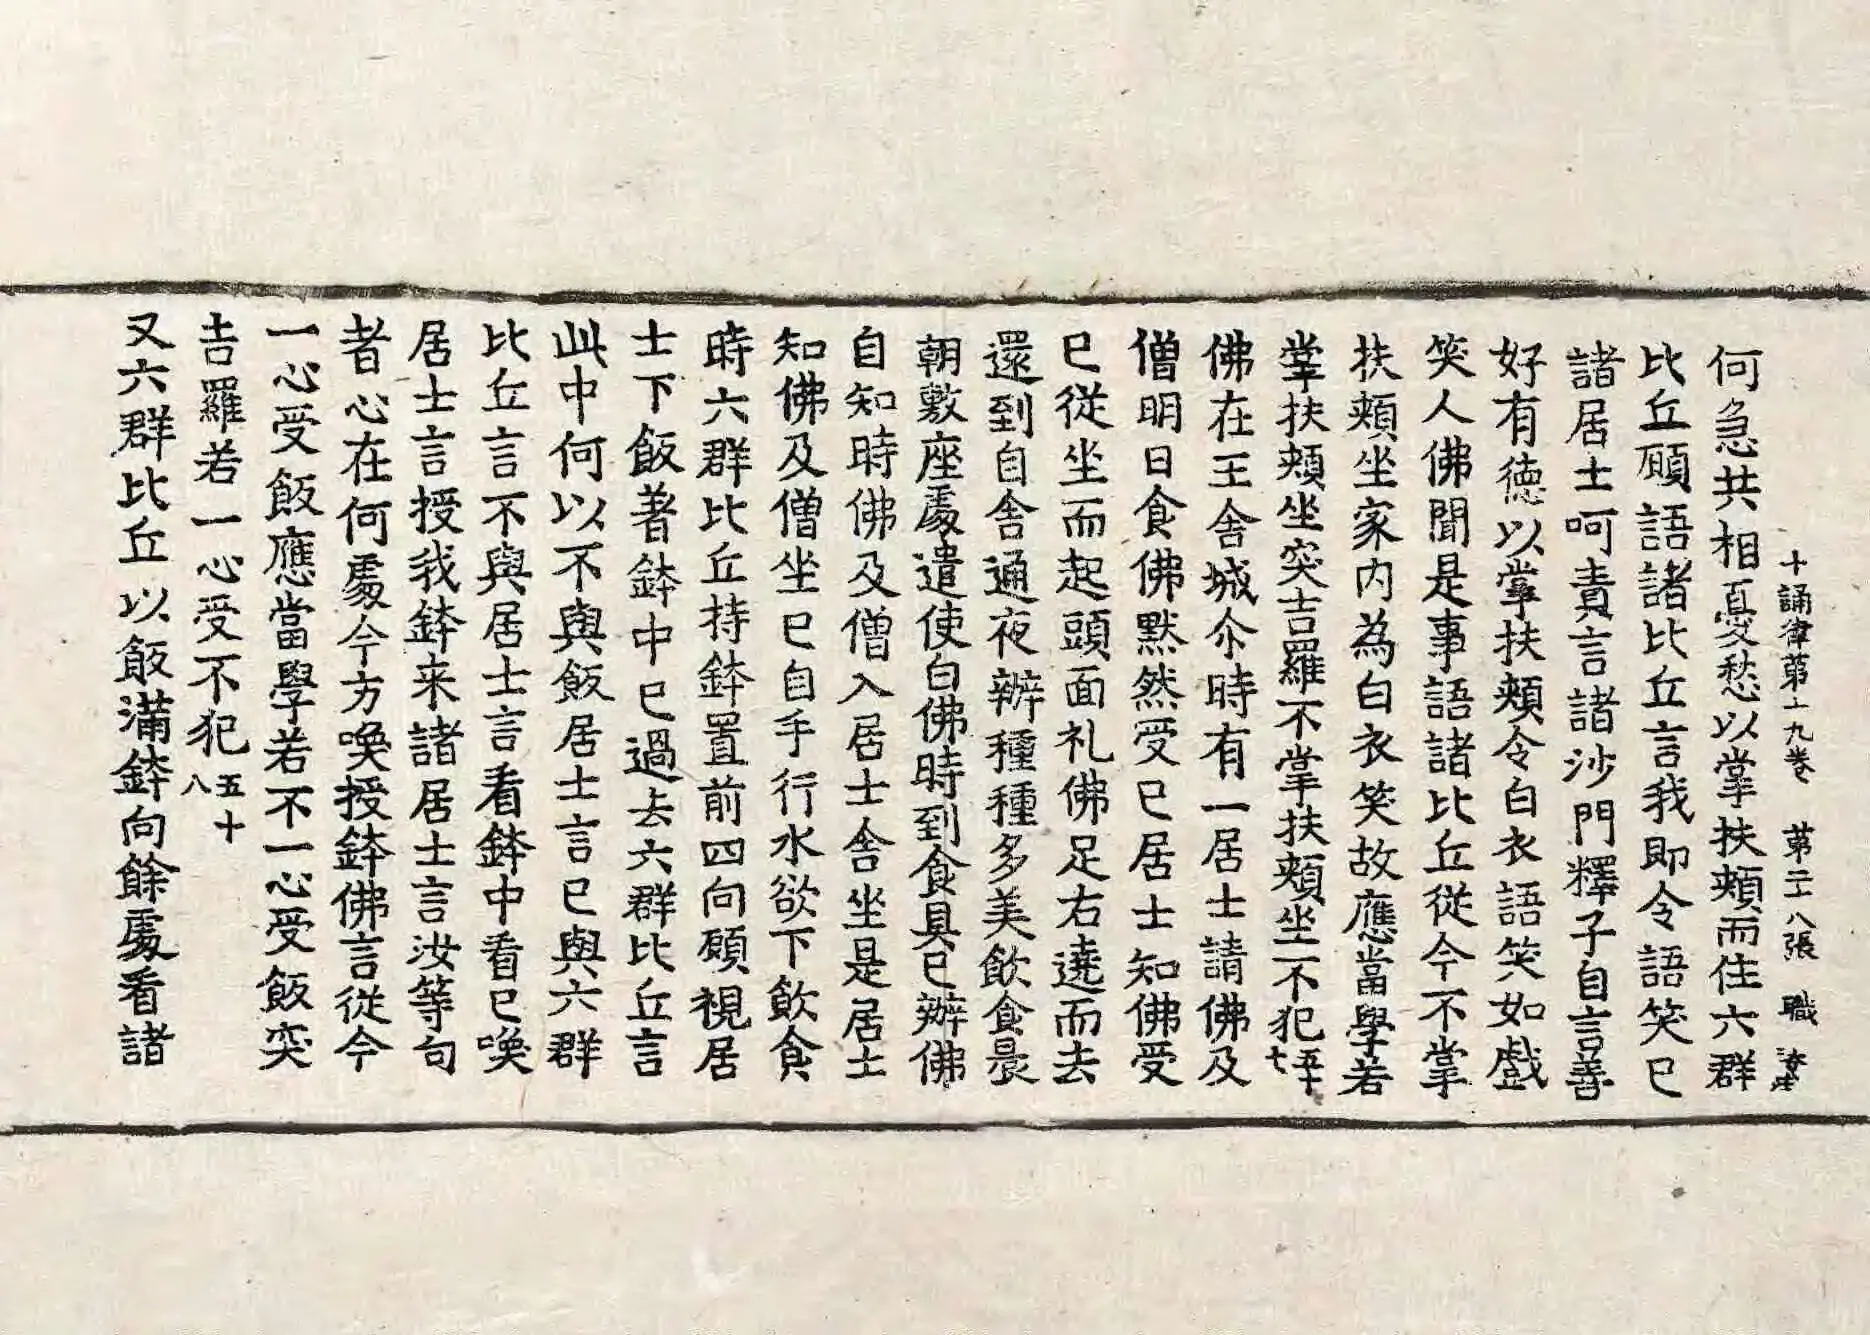 十誦律第十九卷 第二八張 職
何急共相憂愁以掌扶頰而住六群
比丘顧語諸比丘言我即令語笑已
諸居士呵責言諸沙門釋子自言善
好有德以掌扶頰令白衣語笑如戲
笑人佛聞是事語諸比丘從今不掌
扶頰坐家内為白衣笑故應當學若
掌扶頰坐突吉羅不掌扶頰坐不犯五十七
佛在王舍城尒時有一居士請佛及
僧明日食佛默然受已居士知佛受
已從坐而起頭面礼佛足右遶而去
還到自舍通夜辦種種多美飲食晨
朝敷座處遣使白佛時到食具已辦佛
自知時佛及僧入居士舍坐是居士
知佛及僧坐已自手行水欲下飲食
時六群比丘持鉢置前四向顧視居
士下飯著鉢中已過去六群比丘言
此中何以不與飯居士言已與六群
比丘言不與居士言看鉢中看已喚
居士言授我鉢来諸居士言汝等向
者心在何處今方喚授鉢佛言從今
一心受飯應當學若不一心受飯突
吉羅若一心受不犯五十八
又六群比丘以飯滿鉢向餘處看諸